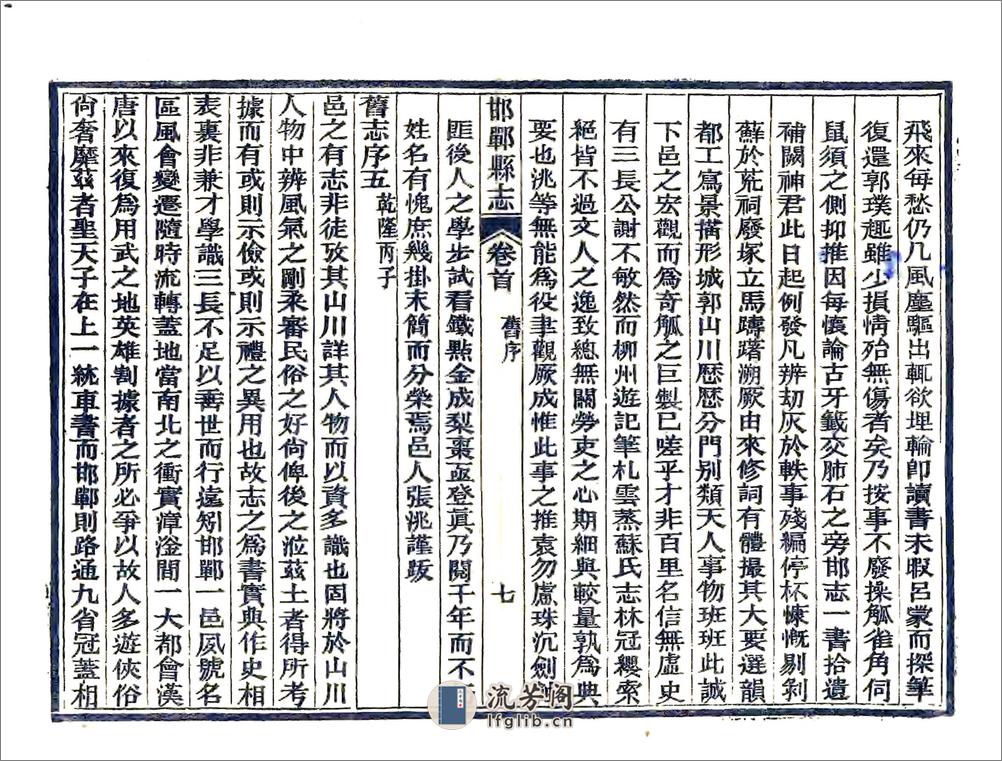 飛來每愁仍几風塵驅出輒欲埋輪卽讀書未暇呂蒙而探筆
復還郭璞趣雖少損情殆無傷者矣乃按事不廢操觚雀角伺
鼠須之側抑推因每懷論古牙籤交肺石之旁邯志一書拾遺
補闕神君此日起例發凡辨刧灰於軼事殘編停杯慷慨剔剝
蘚於荒祠廢塚立馬躊躇溯厥由來修詞有體撮其大要選韻
都工寫景描形城郭山川歴歴分門別類天人事物班班此誠
下邑之宏觀而爲奇觚之巨製已嗟乎才非百里名信無虛史
有三長公謝不敏然而柳州遊記筆札雲蒸蘇氏志林冠纓索
絕皆不過文人之逸致總無關勞吏之心期細與較量孰爲典
要也洮等無能爲役聿觀厥成惟此事之推袁勿慮珠沉劍
邯鄲縣志 卷首 舊序 七
匪後人之學步試看鐵點金成梨棗亟登眞乃閱千年而不
姓名有愧庶幾掛末簡而分榮焉邑人張洮謹跋
舊志序五 乾隆丙子
邑之有志非徒攷其山川詳其人物而以資多識也固將於山川
人物中辨風氣之剛柔審民俗之好尚俾後之涖茲土者得所考
據而有或則示儉或則示禮之異用也故志之爲書實與作史相
表裏非兼才學識三長不足以善世而行遠矧邯鄲一邑夙號名
區風會變遷隨時流轉蓋地當南北之衝實漳滏間一大都會漢
唐以來復爲用武之地英雄割據者之所必爭以故人多遊俠俗
尚奢靡茲者聖天子在上一統車書而邯鄲則路通九省冠蓋相
流芳閣
lfglib.cn